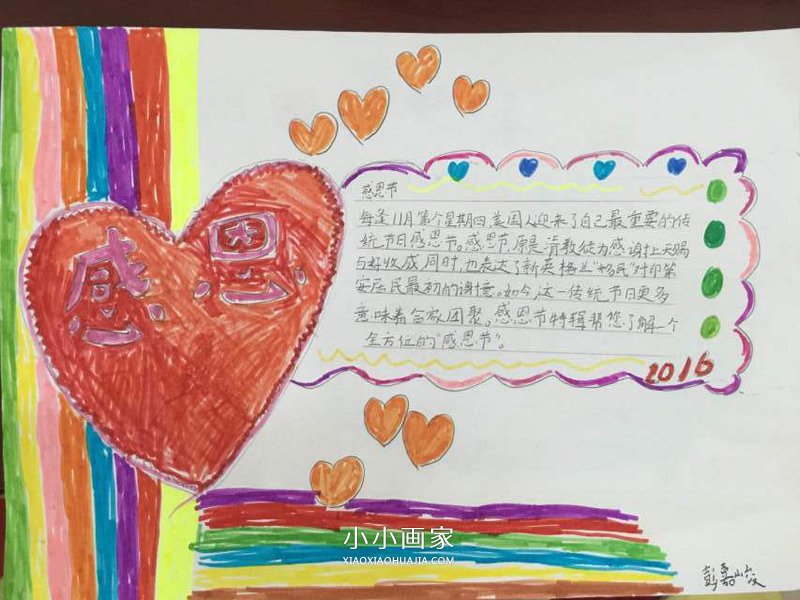 感恩
感恩节
每逢11月第个星期四,美国人迎来了自己最重要的传
统节日感恩节。感恩节,原是清教徒为感谢上天赐
与好收成,同时,也表达了新英格兰“移民”对印第
安居民最初的谢意。如今,这一传统节日更多
意味着合族团聚。感恩节特辑帮您了解一个
全方位的“感恩节”。
2016
小小画家
XIAOXIAOHUAJIA.COM
彭嘉峻